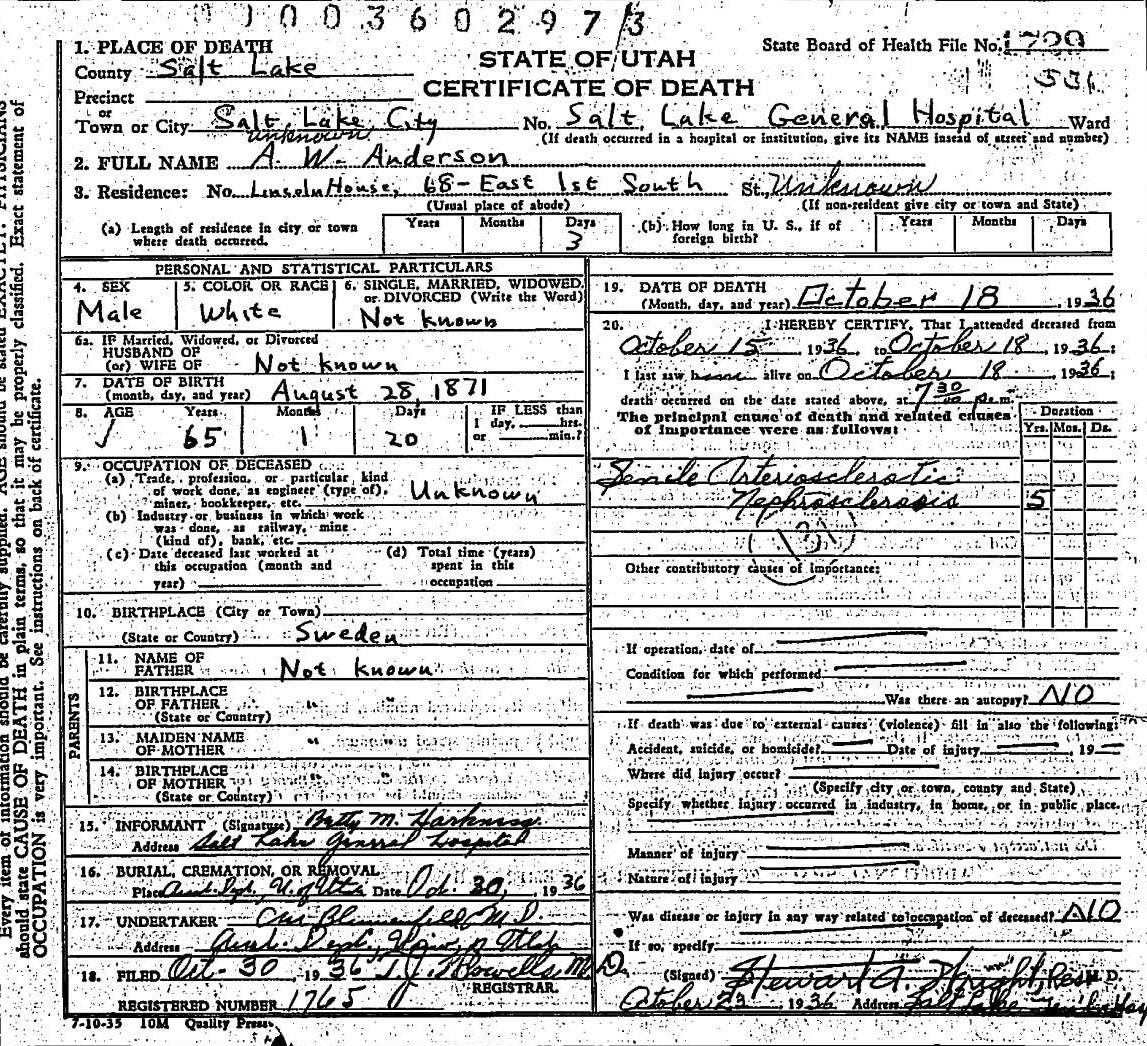 1003602973
1. PLACE OF DEATH
STATE OF UTAH
State Board of Health File No. 1799
County Salt Lake
CERTIFICATE OF DEATH
536
Precinct
or
Town or City Salt Lake City No. Salt Lake General Hospital Ward
(If death occurred in a hospital or institution, give its NAME instead of street and number)
unknown
2. FULL NAME A. W. Anderson
3. Residence: No. Lincoln House, 68-East 1st South St. Unknown
(Usual place of abode) (If non-resident give city or town and State)
(a) Length of residence in city or town where death occurred. Years Months Days 3
(b) How long in U. S., if of foreign birth? Years Months Days
PERSONAL AND STATISTICAL PARTICULARS
4. SEX Male
5. COLOR OR RACE White
6. SINGLE, MARRIED, WIDOWED, or DIVORCED (Write the Word) Not known
6a. IF Married, Widowed, or Divorced
HUSBAND OF
(or) WIFE OF Not known
7. DATE OF BIRTH
(month, day, and year) August 28, 1871
8. AGE Years 65 Months 1 Days 20 IF LESS than 1 day, hrs. or min.?
9. OCCUPATION OF DECEASED
(a) Trade, profession, or particular kind
of work done, as engineer (type of),
miner, bookkeeper, etc. Unknown
(b) Industry or business in which work
was done, as railway, mine
(kind of), bank, etc.
(c) Date deceased last worked at
this occupation (month and
year)
(d) Total time (years)
spent in this
occupation
10. BIRTHPLACE (City or Town)
(State or Country) Sweden
PARENTS
11. NAME OF
FATHER Not known
12. BIRTHPLACE
OF FATHER "
(State or Country)
13. MAIDEN NAME
OF MOTHER "
14. BIRTHPLACE
OF MOTHER " "
(State or Country)
15. INFORMANT (Signature) Betty M. Harkness
Address Salt Lake General Hospital
16. BURIAL, CREMATION, OR REMOVAL
Place Anat. Dpt, U. of Utah Date Oct. 30, 1936
17. UNDERTAKER C. M. Blumenfeld, M.D.
Address Anat. Dept., Univ. of Utah
18. FILED Oct-30 1936 T. J. Howells, M.D.
REGISTRAR.
REGISTERED NUMBER 1765
7-10-35 10M Quality Press
19. DATE OF DEATH
(Month, day, and year) October 18, 1936
20. I HEREBY CERTIFY, That I attended deceased from
October 15 1936 to October 18, 1936;
I last saw alive on October 18, 1936;
death occurred on the date stated above, at 7 30 p.m.
The principal cause of death and related causes
of importance were as follows:
Duration
Yrs. Mos. Ds.
Senile Arteriosclerotic
Nephrosclerosis 5
(131)
Other contributory causes of importance:
If operation, date of
Condition for which performed
Was there an autopsy? NO
If death was due to external causes (violence) fill in also the following:
Accident, suicide, or homicide? Date of injury 19
Where did injury occur?
(Specify city or town, county and State)
Specify whether injury occurred in industry, in home, or in public place.
Manner of injury
Nature of injury
Was disease or injury in any way related to occupation of deceased? NO
If so, specify
(Signed) Stewart A. Wright, Res M.D.
October 23 1936 Address Salt Lake
Every item of information should be carefully supplied. AGE should be stated EXACTLY. PHYSICIANS
should state CAUSE OF DEATH in plain terms, so that it may be properly classified. Exact statement of
OCCUPATION is very important. See instructions on back of certificate.